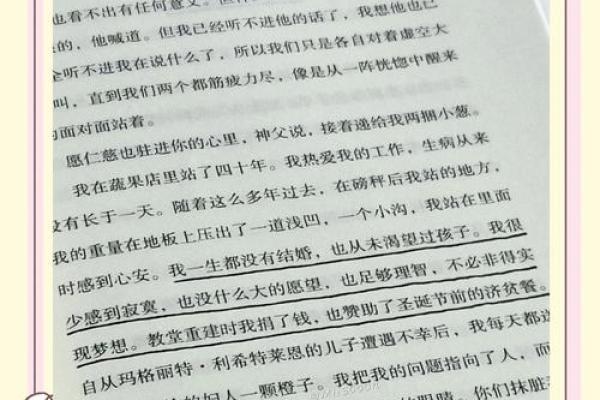 也看不出有任何意义。但
的,他喊道。但我已经听不进他的话了,我想他也已
全听不进我在说什么了,所以我们只是各自对着虚空大
叫,直到我们两个都筋疲力尽,像是从一阵恍惚中醒来
面对面站着。
愿仁慈也驻进你的心里,神父说,接着递给我两捆小葱。
我在蔬果店里站了四十年。我热爱我的工作,生病从来
没有长于一天。随着这么多年过去,在磅秤后我站的地方,
我的重量在地板上压出了一道浅凹,一个小沟,我站在里面
时感到心安。我一生都没有结婚,也从未渴望过孩子。我很
少感到寂寞,也没什么大的愿望,也足够理智,不必非得实
现梦想。教堂重建时我捐了钱,也赞助了圣诞节前的济贫餐。
自从玛格丽特·利希特莱恩的儿子遭遇不幸后,我每天都送
的妇人一颗橙子。我把我的问题指向了人,而
的眼睛。你们抹脏